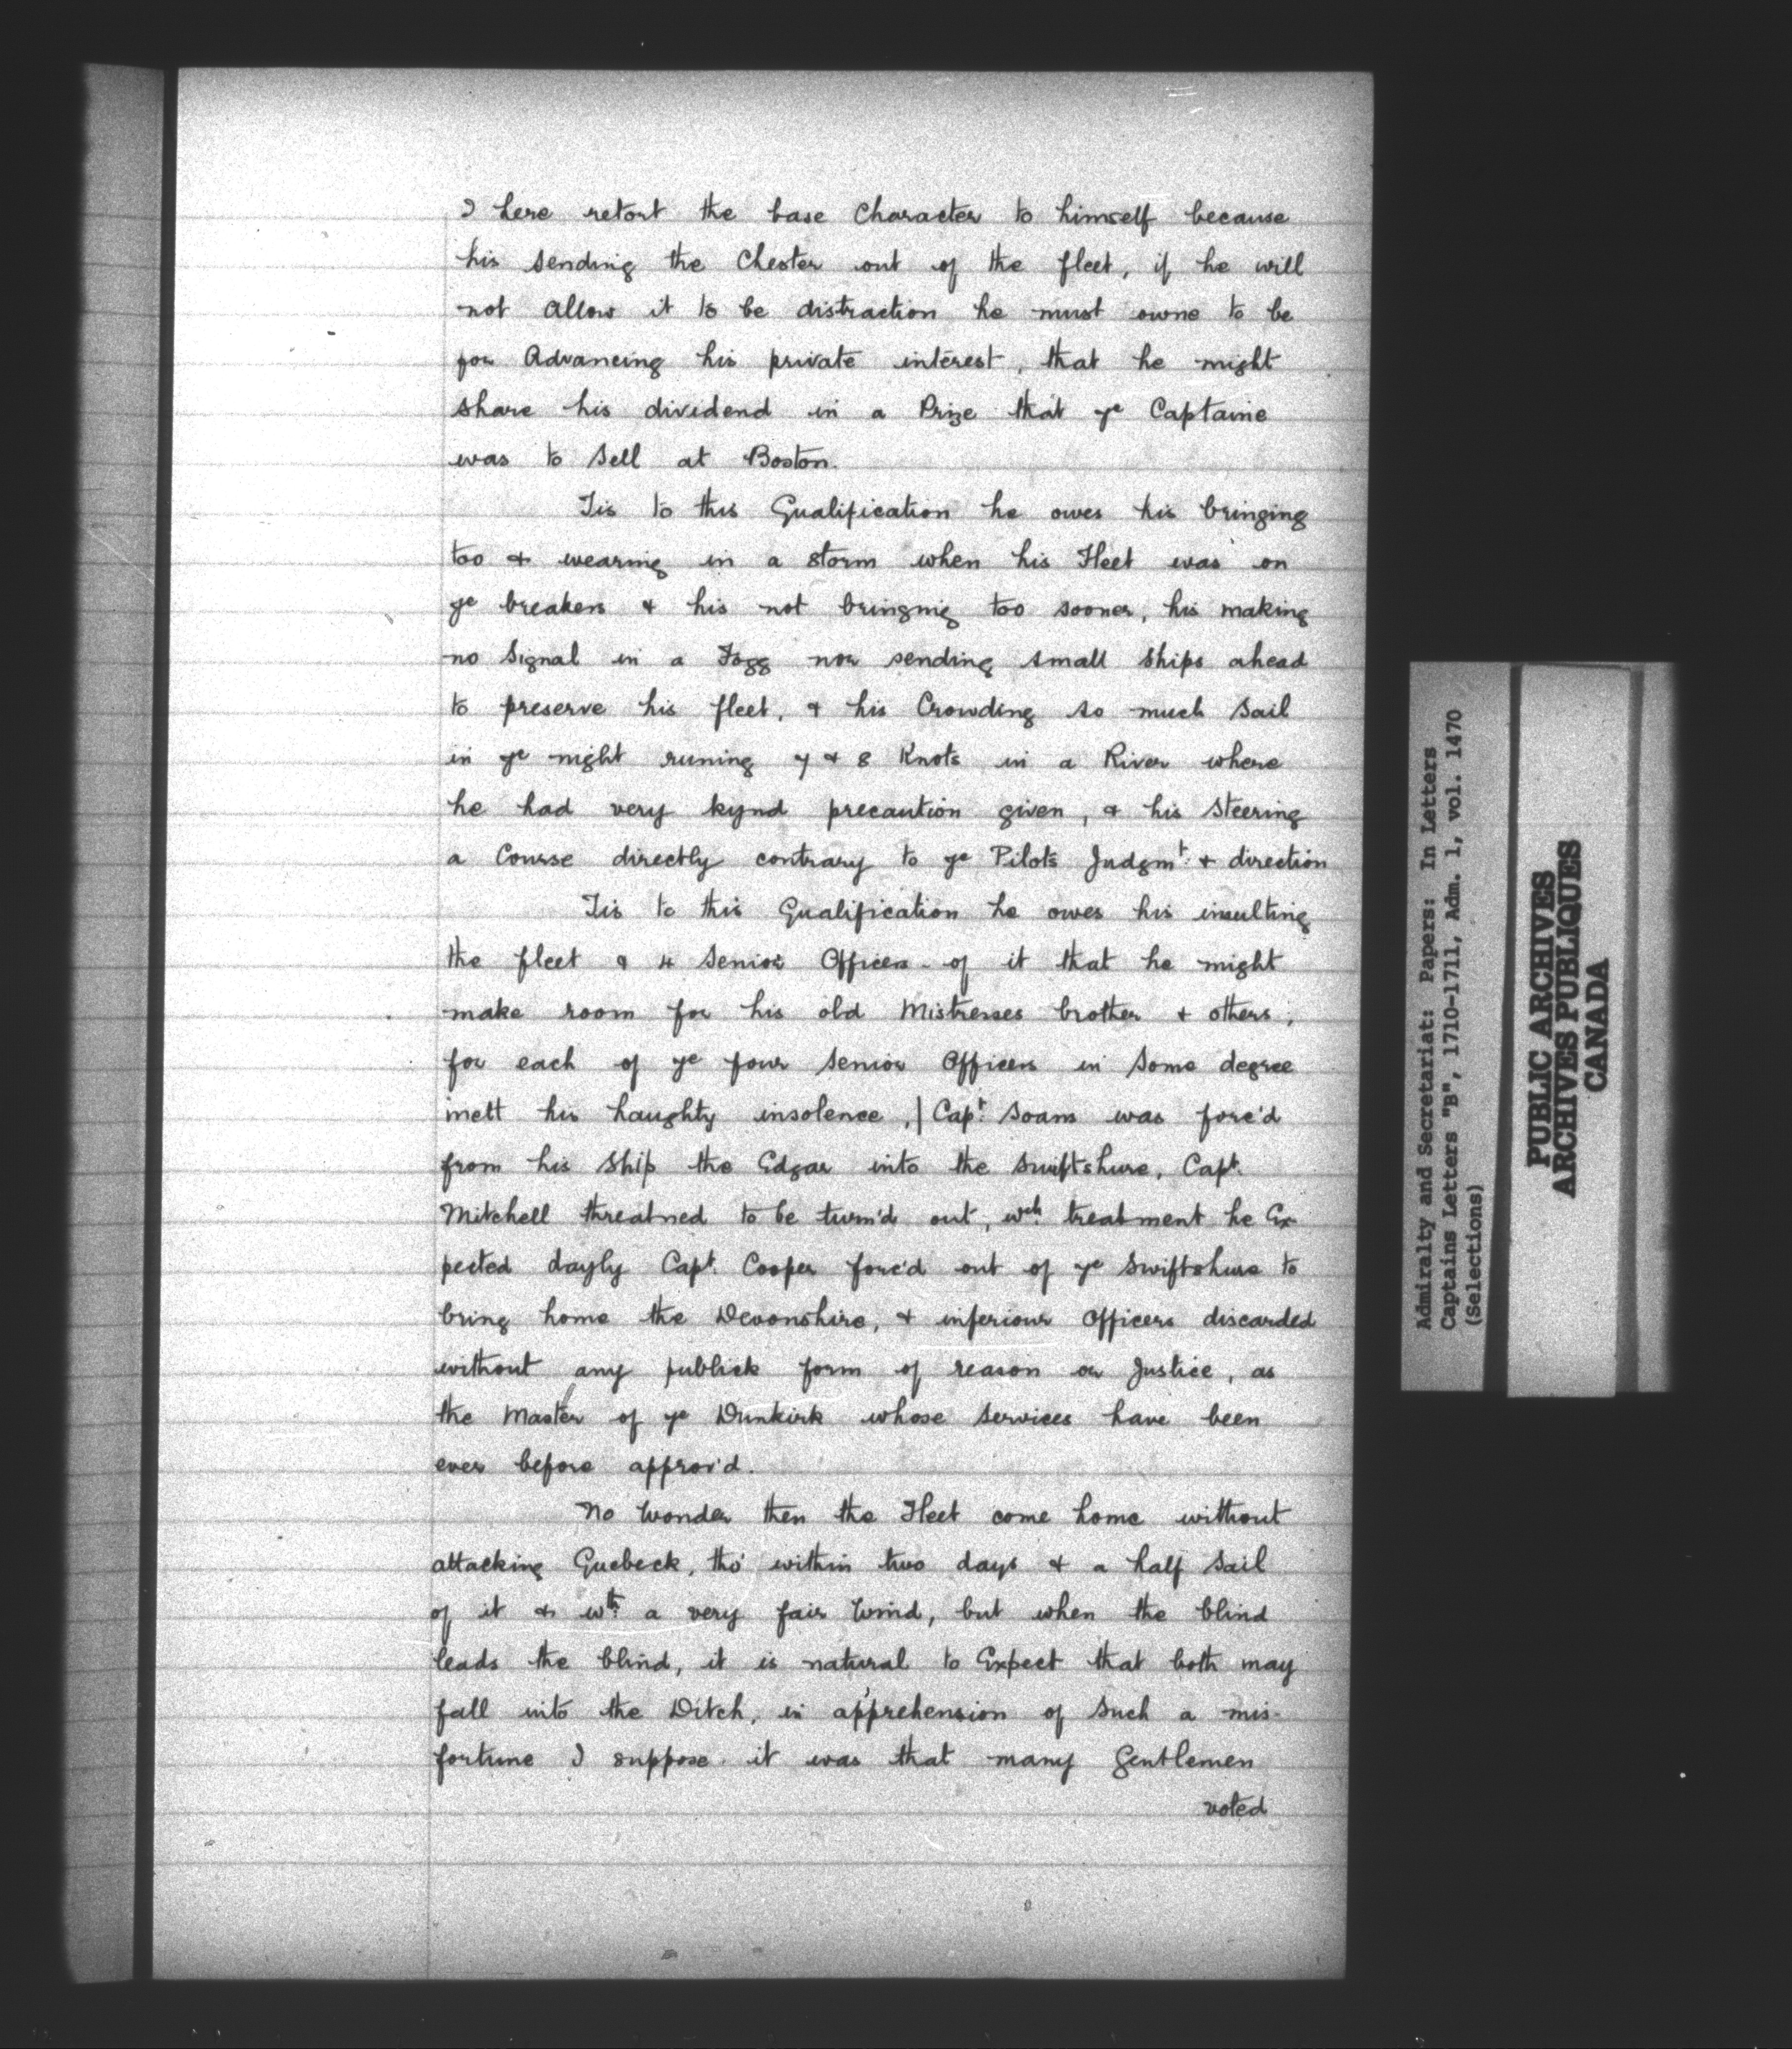 I here retort the base Character to himself because
his sending the Chester out of the fleet, if he will
not Allow it to be distraction he must owne to be
for Advancing his private interest, that he might
share his dividend in a Prize that ye Captaine
was to sell at Boston.
Tis to this Qualification he owes his bringing
too & wearing in a storm when his Fleet was on
ye breakers & his not bringing too sooner, his making
no Signal in a Fogg nor sending small ships ahead
to preserve his fleet, & his Crowding so much sail
in ye night runing 7 & 8 Knots in a River where
he had very kynd precaution given, & his steering
a Course directly contrary to ye Pilots Judgmt. & direction
Tis to this Qualification he owes his insulting
the fleet & 4 Senior Officers of it that he might
make room for his old Mistresses brother & others,
for each of ye four Senior Officers in some degree
mett his haughty insolence,| Capt. Soams was forc'd
from his ship the Edgar into the Swiftshure, Capt.
Mitchell threatned to be turn'd out, wch. treatment he Ex-
pected dayly Capt. Cooper forc'd out of ye Swiftshure to
bring home the Devonshire, & inferiour Officers discarded
without any publick form of reason or Justice, as
the Master of ye Dunkirk whose services have been
ever before approv'd.
No Wonder then the Fleet come home without
attacking Quebeck, tho' within two days & a half sail
of it & wth. a very fair Wind, but when the blind
leads the blind, it is natural to Expect that both may
fall into the Ditch, in apprehension of such a mis-
fortune I suppose it was that many Gentlemen
voted
Admiralty and Secretariat: Papers: In Letters
Captains Letters "B", 1710-1711, Adm. 1, vol. 1470
(Selections)
PUBLIC ARCHIVES
ARCHIVES PUBLIQUES
CANADA